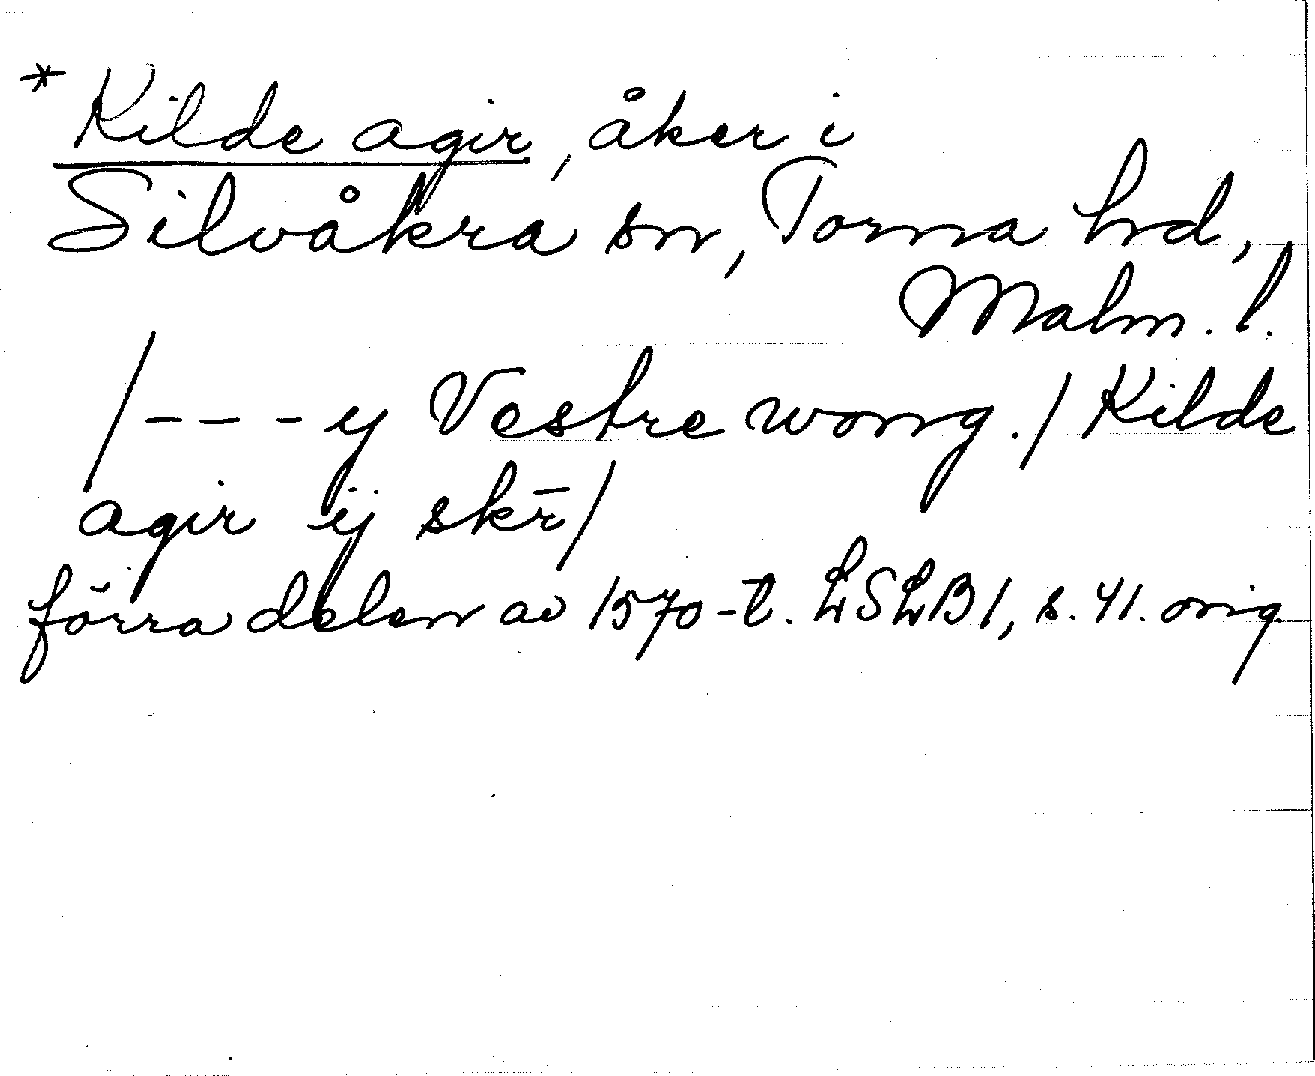 * Kilde agir, åker i
Silvåkra sn, Torna hd,
Malm. l.
/--- y Vestre wong. / Kilde
agir ij skr̄ /
förra delen av 1570-t. LSLB1, s. 41. orig